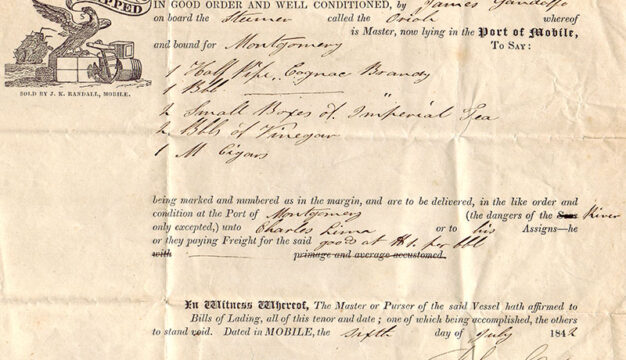 SHIPPED
IN GOOD ORDER AND WELL CONDITIONED, by James
on board the Steamer called the Oriole whereof
is Master, now lying in the Port of Mobile,
and bound for Montgomery TO SAY:
1 Half Pipe, Cognac Brandy
1 Bbl "
2 Small Boxes of Imperial Tea
2 Bbls of Vinegar
1 M Cigars
SOLD BY J. K. RANDALL, MOBILE.
being marked and numbered as in the margin, and are to be delivered, in the like order and
condition at the Port of Montgomery (the dangers of the Seas River
only excepted,) unto Charles Linna or to his Assigns—he
or they paying Freight for the said good at $1. per bbl
with primage and average accustomed.
In Witness Whereof, The Master or Purser of the said Vessel hath affirmed to
Bills of Lading, all of this tenor and date; one of which being accomplished, the others
to stand void. Dated in MOBILE, the sixth day of July 1842